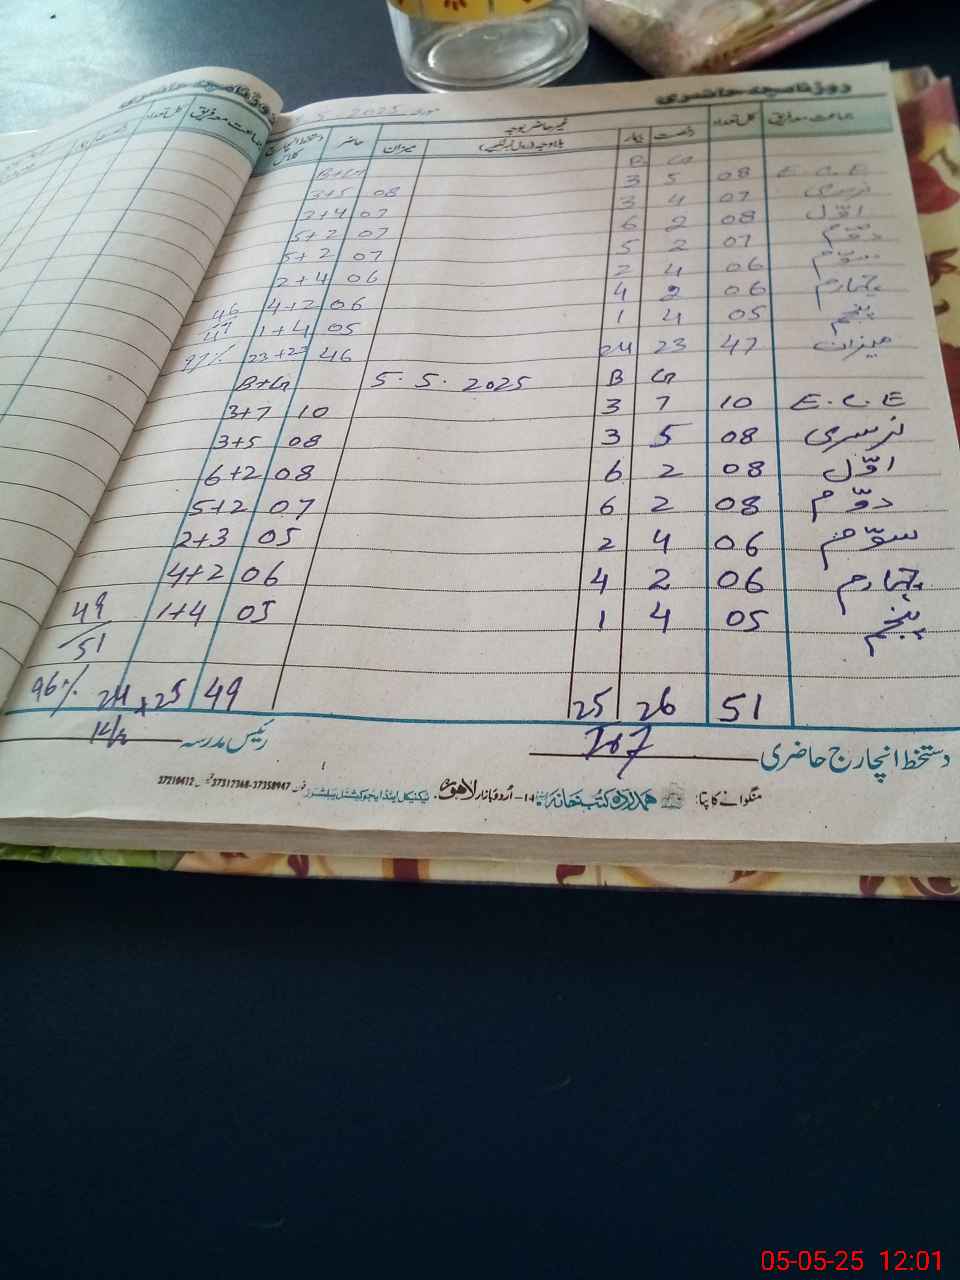 روزنامچہ حاضری
جماعت معہ فریق کل تعداد رخصت بیمار غیر حاضر بوجہ میزان حاضر دستخط انچارج کلاس
5 2025
B G B+G
E.C.E 08 5 3 08 3+5
نرسری 07 4 3 07 3+4
اوّل 08 2 6 07 5+2
دوّم 07 2 5 07 5+2
سوّم 06 4 2 06 2+4
چہارم 06 2 4 06 4+2
پنجم 05 4 1 05 1+4 46/47
میزان 47 23 24 46 23+23 97%
G B 5.5.2025 B+G
E.C.E 10 7 3 10 3+7
نرسری 08 5 3 08 3+5
اوّل 08 2 6 08 6+2
دوّم 08 2 6 07 5+2
سوّم 06 4 2 05 2+3
چہارم 06 2 4 06 4+2
پنجم 05 4 1 05 1+4 49/51
51 26 25 49 24+25 96%
دستخط انچارج حاضری رئیس مدرسہ
منگوانے کا پتا: ہمدرد کتب خانہ اُردو بازار لاہور۔ ٹیکنیکل اینڈ ایجوکیشنل پبلشرز فون 37358947-37317368
05-05-25 12:01